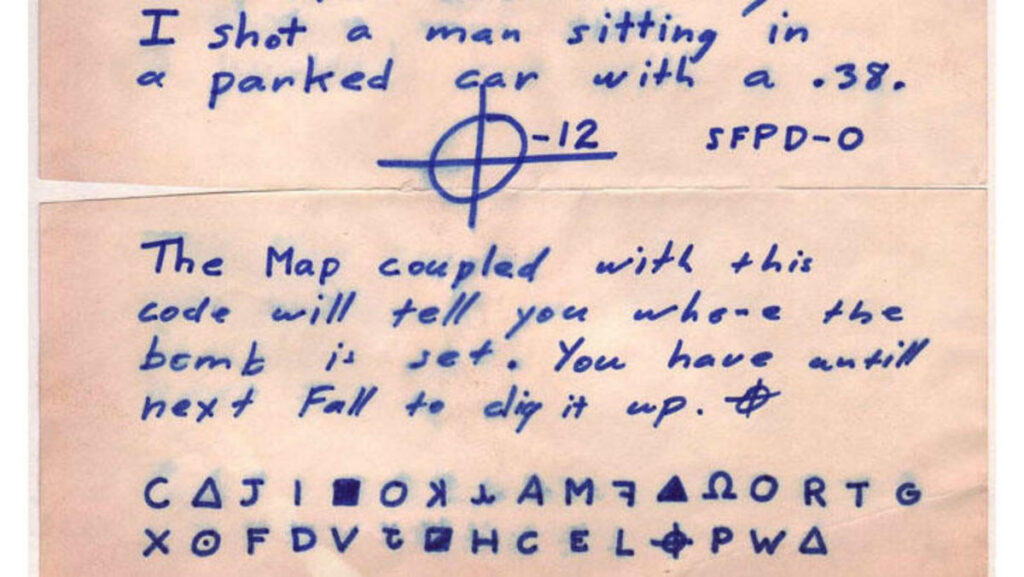 I shot a man sitting in
a parked car with a .38.
⌖-12 SFPD-0
The Map coupled with this
code will tell you where the
bomb is set. You have untill
next Fall to dig it up. ⌖
C Δ J I ■ O ꓘ A M ꟻ ▲ Ω O R T G
X ⊙ F D V H C E L ⌖ P W Δ